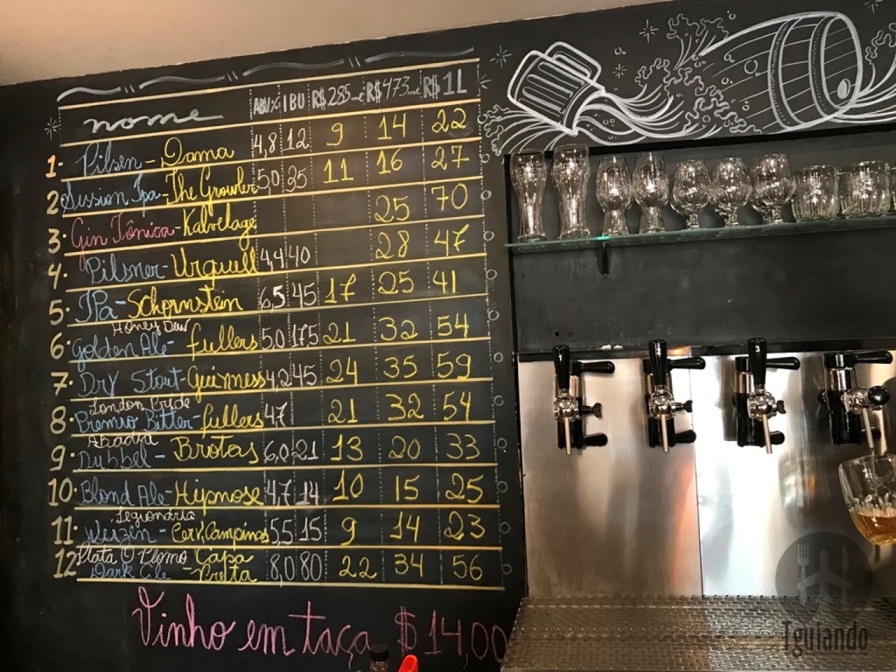 nome ABV% IBU R$285ml R$473ml R$1L
1. Pilsen - Dama 4,8 12 9 14 22
2. Session Ipa - The Growler 5,0 35 11 16 27
3. Gin Tônica - Kalvelage 25 70
4. Pilsner - Urquell 4,4 40 28 47
5. IPa - Schornstein 6,5 45 17 25 41
Honey Dew
6. Golden Ale - fullers 5,0 17,5 21 32 54
7. Dry Stout - Guinness 4,2 45 24 35 59
London Pride
8. Premio Bitter - fullers 4,7 21 32 54
Abadia
9. Dubbel - Brotas 6,0 21 13 20 33
10. Blond Ale - Hipnose 4,7 14 10 15 25
Legionária
11. Weizen - Cerv. Campinas 5,5 15 9 14 23
Plata O Plomo - Capa
12 Dark Ale Preta 8,0 80 22 34 56
Vinho em taça $14,00
Tguiando